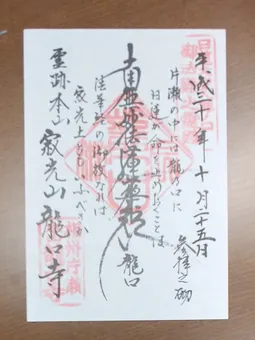 平成三十年十月二十五日
参拝之砌
片瀬の中には龍の口に
日蓮が命をとどめおくことは
南無妙法蓮華経
龍口
法華経の御故なれば
寂光土ともいふべきか
霊跡本山 寂光山 龍口寺